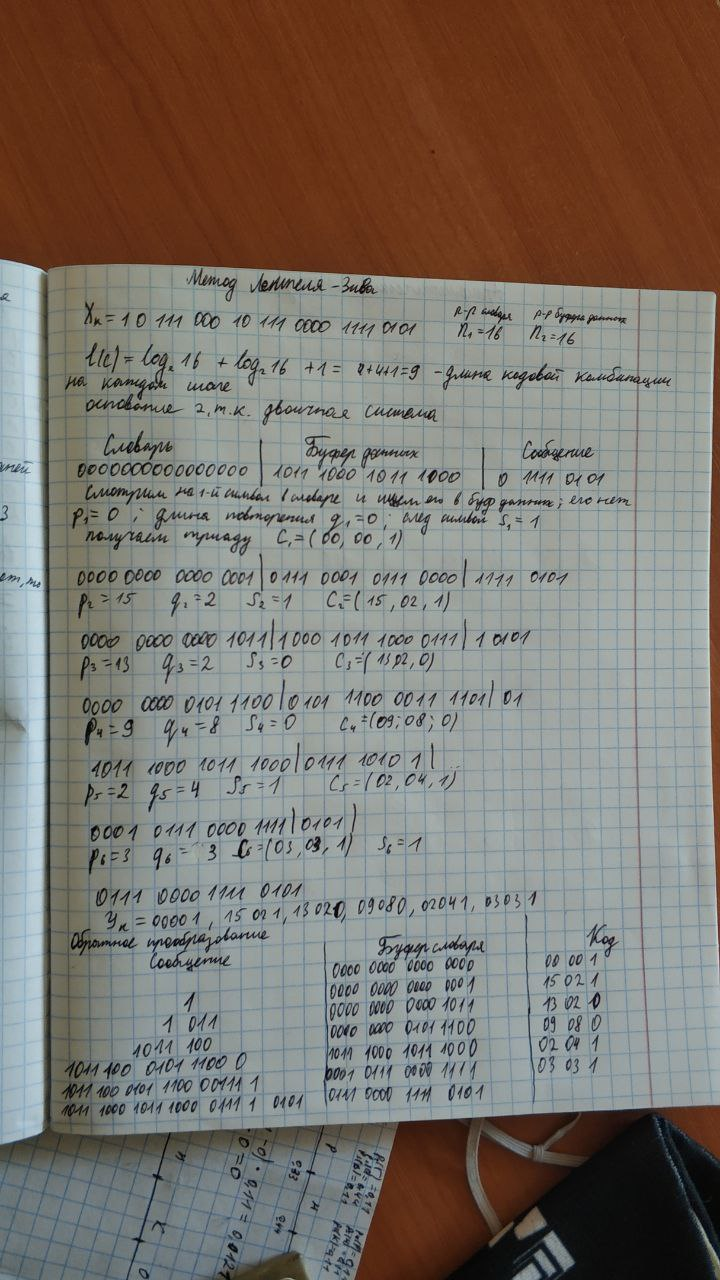 Метод Лемпеля-Зива
Xк = 10 111 000 10 111 0000 1111 0101
р-р словаря р-р буфера данных
n₁=16 n₂=16
l(c) = log₂16 + log₂16 + 1 = 4+4+1=9 - длина кодовой комбинации
на каждом шаге
основание 2, т.к. двоичная система
Словарь | Буфер данных | Сообщение
0000000000000000 | 1011 1000 1011 1000 | 0 1111 0101
Смотрим на 1-й символ в словаре и ищем его в буф данных; его нет
p₁=0 ; длина повторения q₁=0 ; след символ S₁=1
получаем триаду C₁=(00, 00, 1)
0000 0000 0000 0001 | 0111 0001 0111 0000 | 1111 0101
p₂=15 q₂=2 S₂=1 C₂=(15, 02, 1)
0000 0000 0000 1011 | 1000 1011 1000 0111 | 1 0101
p₃=13 q₃=2 S₃=0 C₃=(13,02,0)
0000 0000 0101 1100 | 0101 1100 0011 1101 | 01
p₄=9 q₄=8 S₄=0 C₄=(09; 08; 0)
1011 1000 1011 1000 | 0111 1010 1 |
p₅=2 q₅=4 S₅=1 C₅=(02, 04, 1)
0001 0111 0000 1111 | 0101 |
p₆=3 q₆=3 C₆=(03, 03, 1) S₆=1
0111 0000 1111 0101
Yк = 00001, 15021, 13020, 09080, 02041, 03031
Обратное преобразование
Сообщение | Буфер словаря | Код
0000 0000 0000 0000 | 00 00 1
1 | 0000 0000 0000 0001 | 15 02 1
1 011 | 0000 0000 0000 1011 | 13 02 0
1011 100 | 0000 0000 0101 1100 | 09 08 0
1011 100 0101 1100 0 | 1011 1000 1011 1000 | 02 04 1
1011 100 0101 1100 00111 1 | 0001 0111 0000 1111 | 03 03 1
1011 1000 1011 1000 0111 1 0101 | 0111 0000 1111 0101